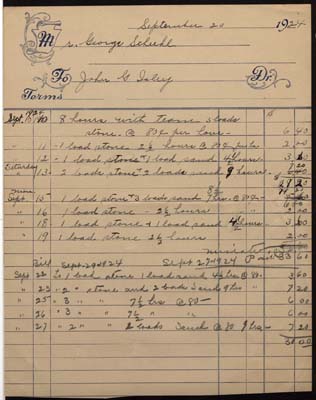 September 20 1924
Mr. George Scheihl
To John G Isley Dr.
Terms
Sept. 1924 10 8 hours with team 3 loads $
stone @ 80¢ per hour- 6 40
" 11 - 1 load stone 2½ hours @ 80¢ 2 00
" 12 - 1 load stone + 1 load sand 4½ hours- 3 60
Saturday " 13 - 2 loads stone + 2 loads sand 9 hours- 7 20
Sept. 15 - 1 load stone + 3 loads sand
" 16 1 load stone - 2½ hours 2 00
" 18 1 load stone + 1 load sand 4½ hours 3 60
" 19 1 load stone 2½ hours 2 00
Bill Sept 29 1924 Sept 27-1924 Paid 33 61
Sept 22 To 1 load stone 1 load sand 4½ hrs @ 80- 3 60
" 23 " 2 " stone and 2 loads sand 9 hrs " 7 20
" 25 " 3 " " 7½ hrs @ 80- 6 00
" 26 " 3 " " 7½ " " 6 00
" 27 " 2 " " 2 loads sand @ 80 9 hrs- 7 20
30.00